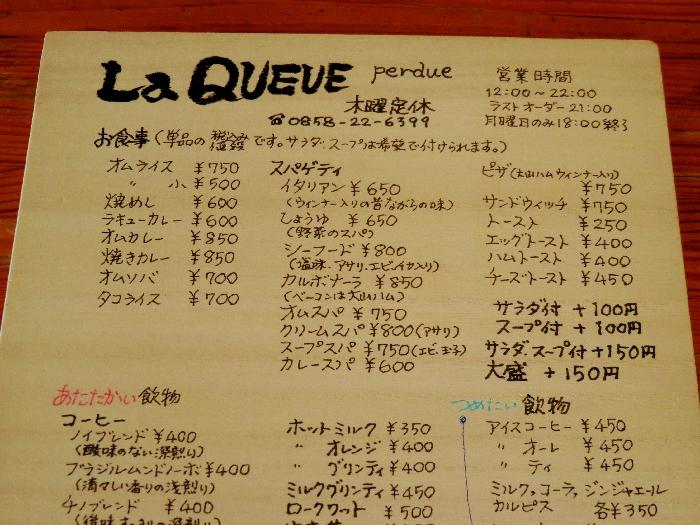 La QUEUE perdue
木曜定休
☎0858-22-6399
営業時間
12:00～22:00
ラストオーダー21:00
月曜日のみ18:00終了
お食事(単品の税込み値段です。サラダ、スープは希望で付けられます。)
オムライス ¥750
〃 小 ¥500
焼めし ¥600
ラキューカレー ¥600
オムカレー ¥850
焼きカレー ¥850
オムソバ ¥700
タコライス ¥700
スパゲティ
イタリアン ¥650
(ウィンナー入りの昔ながらの味)
しょうゆ ¥650
(野菜のスパ)
シーフード ¥800
(塩味、アサリ、エビ、イカ入り)
カルボナーラ ¥850
(ベーコンは大山ハム)
オムスパ ¥750
クリームスパ ¥800(アサリ)
スープスパ ¥750(エビ、玉子)
カレースパ ¥600
ピザ(大山ハムウィンナー入り)
¥750
サンドウィッチ ¥750
トースト ¥250
エッグトースト ¥400
ハムトースト ¥400
チーズトースト ¥450
サラダ付 +100円
スープ付 +100円
サラダ、スープ付+150円
大盛 +150円
あたたかい飲物
コーヒー
ノイブレンド ¥400
(酸味のない深煎り)
ブラジルムンドノーボ ¥400
(清々しい香りの浅煎り)
チノブレンド ¥400
ホットミルク ¥350
〃 オレンジ ¥400
〃 グリンティ ¥400
ミルクグリンティ ¥450
ロークワット ¥500
つめたい飲物
アイスコーヒー ¥450
〃 オーレ ¥450
〃 ティ ¥450
ミルク、コーラ、ジンジャエール
カルピス 各¥350